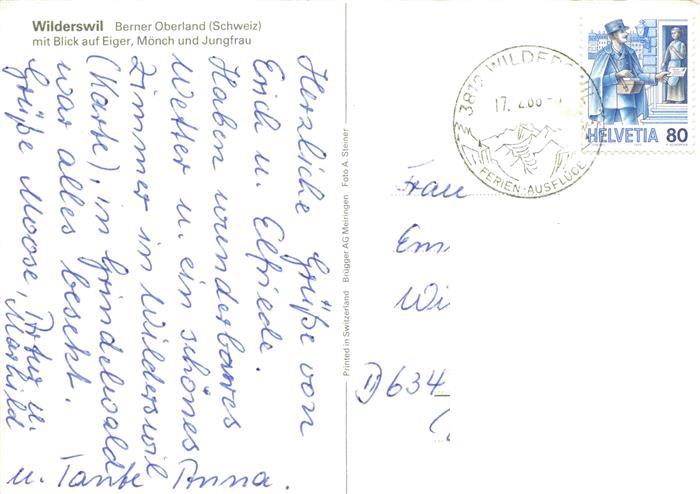 Wilderswil Berner Oberland (Schweiz)
mit Blick auf Eiger, Mönch und Jungfrau
Herzliche Grüße von
Erich u. Elfriede.
Haben wunderbares
Wetter u. ein schönes
Zimmer in Wilderswil
(Karte), in Grindelwald
war alles besetzt.
Grüße Moose, Artur u.
Marhild
u. Tante Anna.
Printed in Switzerland Brügger AG Meiringen Foto A. Steiner
3812 WILDERS
17. 2.00
FERIEN-AUSFLÜGE
HELVETIA 80
Frau
Em
Wi
D 634